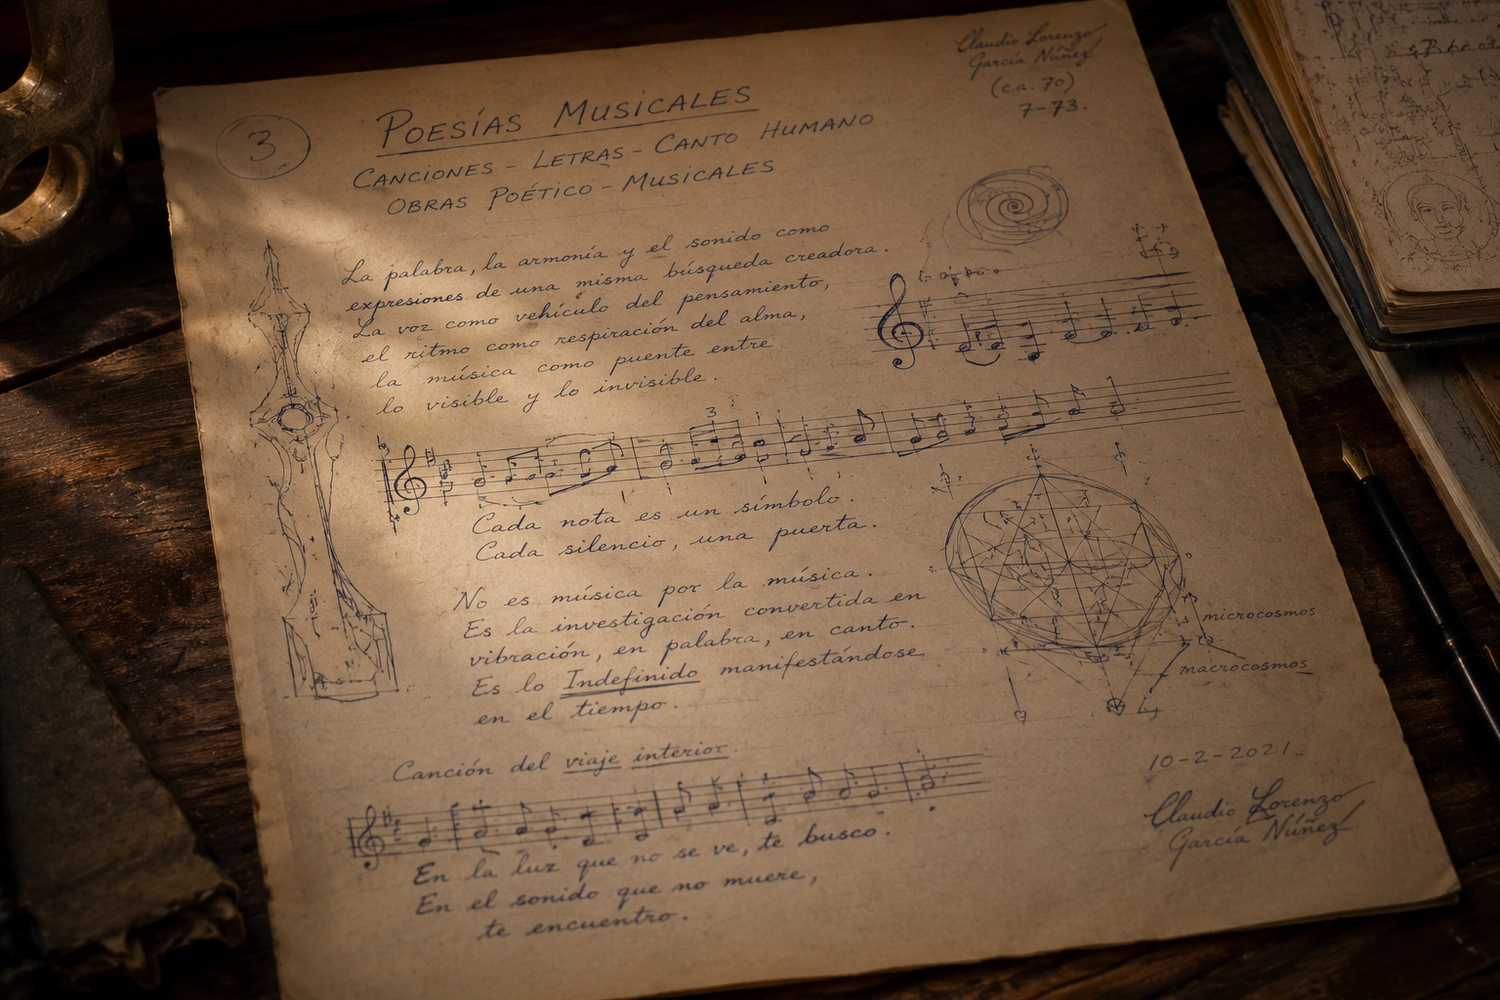 Claudio Lorenzo
García Núñez
(c.a. 70)
7-73.
3
POESÍAS MUSICALES
CANCIONES - LETRAS - CANTO HUMANO
OBRAS POÉTICO - MUSICALES
La palabra, la armonía y el sonido como
expresiones de una misma búsqueda creadora.
La voz como vehículo del pensamiento,
el ritmo como respiración del alma,
la música como puente entre
lo visible y lo invisible.
3
Cada nota es un símbolo.
Cada silencio, una puerta.
No es música por la música.
Es la investigación convertida en
vibración, en palabra, en canto.
Es lo Indefinido manifestándose
en el tiempo.
microcosmos
macrocosmos
Canción del viaje interior.
En la luz que no se ve, te busco.
En el sonido que no muere,
te encuentro.
10-2-2021
Claudio Lorenzo
García Núñez